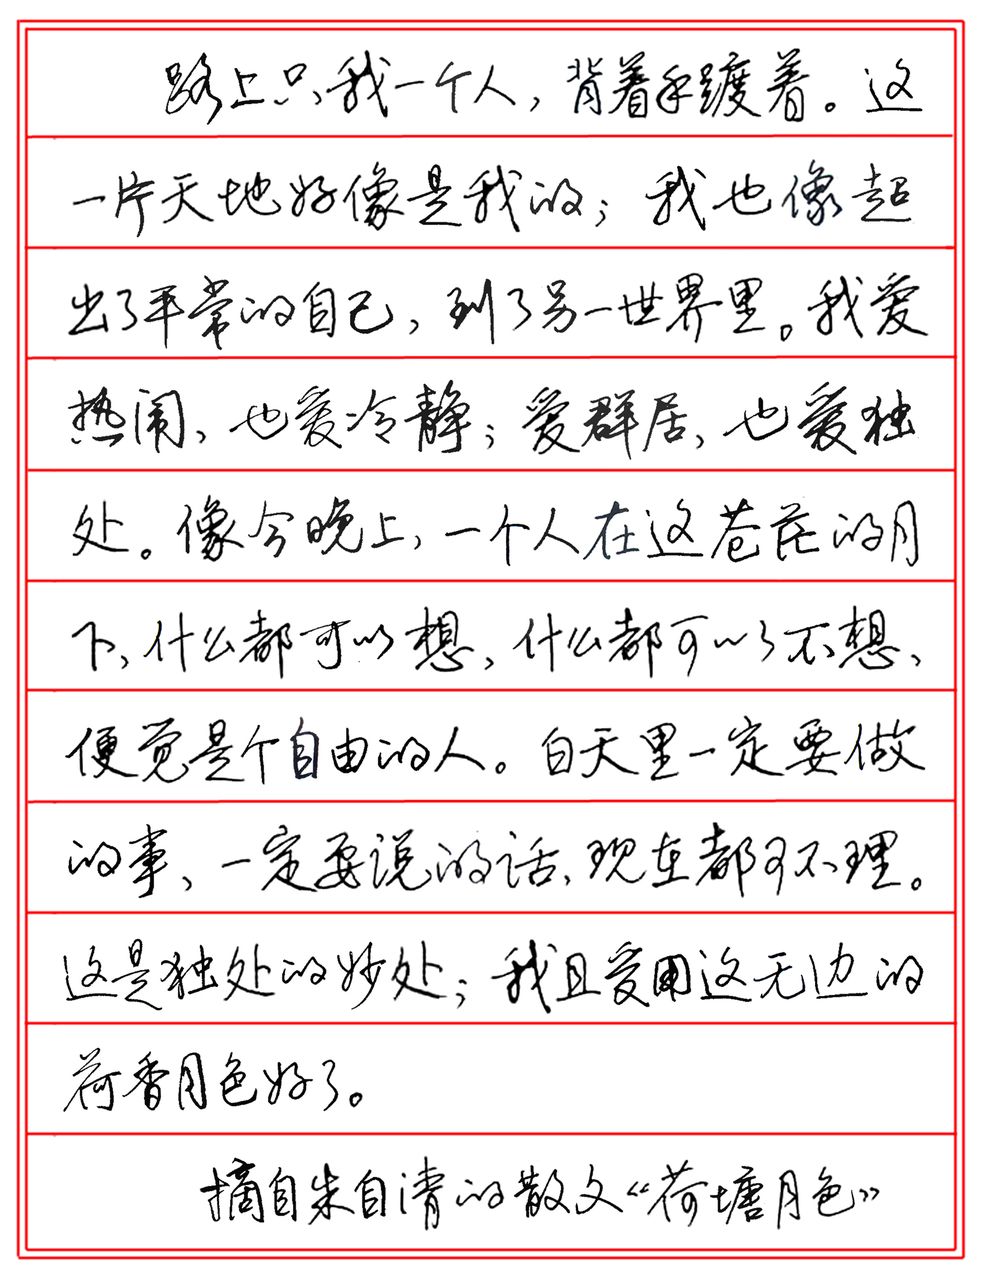 路上只我一个人，背着手踱着。这
一片天地好像是我的；我也像超
出了平常的自己，到了另一世界里。我爱
热闹，也爱冷静；爱群居，也爱独
处。像今晚上，一个人在这苍茫的月
下，什么都可以想，什么都可以不想，
便觉是个自由的人。白天里一定要做
的事，一定要说的话，现在都可不理。
这是独处的妙处；我且受用这无边的
荷香月色好了。
摘自朱自清的散文“荷塘月色”